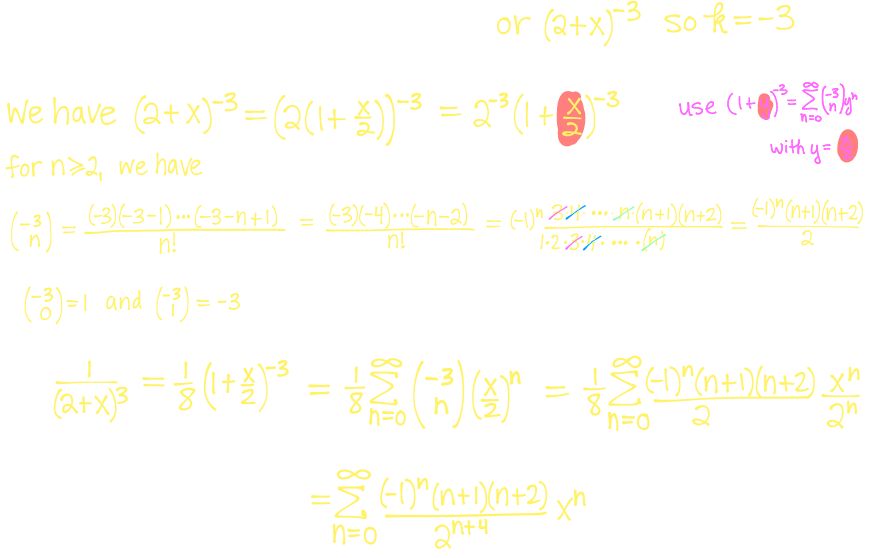 or (2+x)^-3 so k = -3
we have (2+x)^-3 = (2(1+x/2))^-3 = 2^-3 (1+x/2)^-3
use (1+y)^-3 = ∑_{n=0}^∞ (-3 n) y^n
with y = x/2
for n≥2, we have
(-3 n) = (-3)(-3-1)⋯(-3-n+1) / n! = (-3)(-4)⋯(-n-2) / n! = (-1)^n 3·4·⋯·n·(n+1)(n+2) / 1·2·3·4·⋯·(n) = (-1)^n (n+1)(n+2) / 2
(-3 0) = 1 and (-3 1) = -3
1/(2+x)^3 = 1/8 (1+x/2)^-3 = 1/8 ∑_{n=0}^∞ (-3 n) (x/2)^n = 1/8 ∑_{n=0}^∞ (-1)^n (n+1)(n+2) / 2 x^n / 2^n
= ∑_{n=0}^∞ (-1)^n (n+1)(n+2) / 2^{n+4} x^n